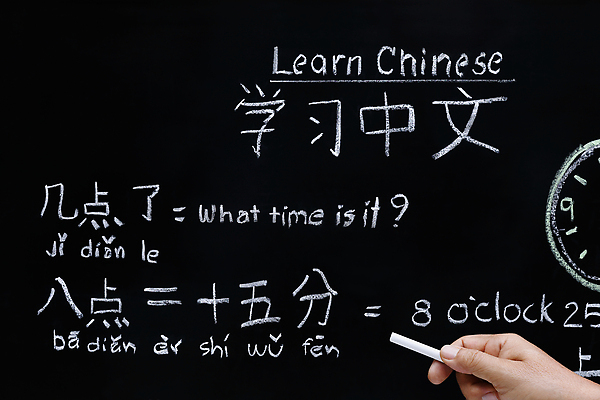 Learn Chinese
学习中文
几点了 = What time is it?
jǐ diǎn le
9
八点二十五分 = 8 o'clock 25
bā diǎn èr shí wǔ fēn
上